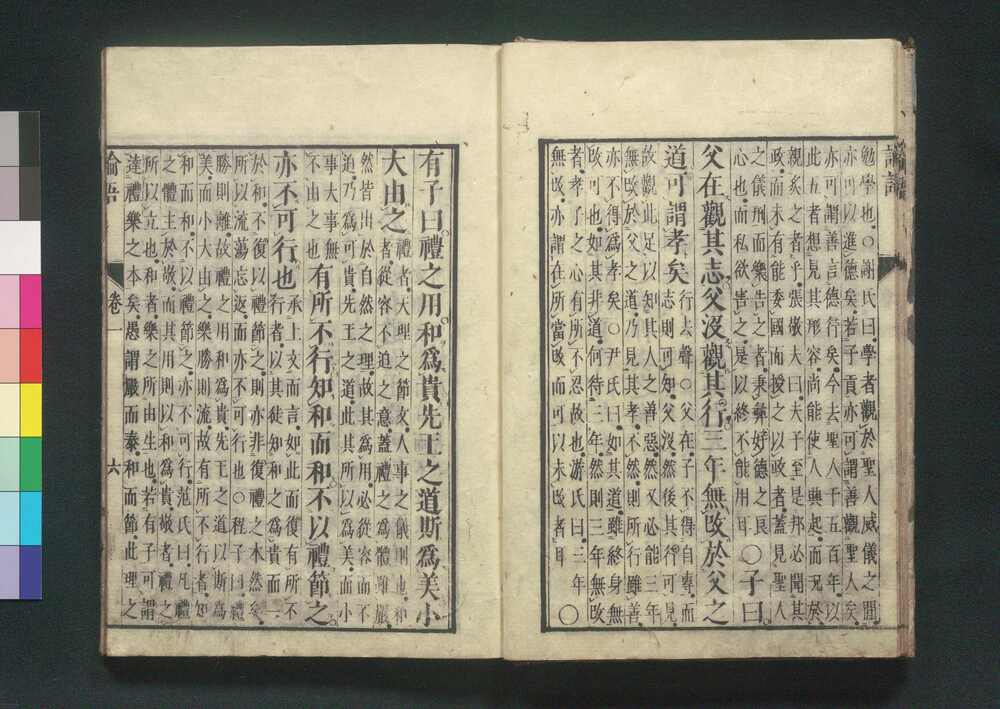 論語
勉學也○謝氏曰學者觀於聖人威儀之間
亦可以進德矣若子貢亦可謂善觀聖人矣
亦可謂善言德行矣今去聖人千五百年以
此五者想見其形容尚能使人興起而況於
親炙之者乎張敬夫曰夫子至是邦必聞其
政而未有能委國而授之以政者蓋見聖人
之儀刑而樂告之者秉彝好德之良
心也而私欲害之是以終不能用耳
○子曰
父在觀其志父沒觀其行三年無改於父之
道可謂孝矣
行去聲○父在子不得自專而
志則可知父沒然後其行可見
故觀此足以知其人之善惡然又必能三年
無改於父之道乃見其孝不然則所行雖善
亦不得爲孝矣○尹氏曰如其道雖終身無
改可也如其非道何待三年然則三年無改
者孝子之心有所不忍故也游氏曰三年
無改亦謂在所當改而可以未改者耳
○
有子曰禮之用和爲貴先王之道斯爲美小
大由之
禮者天理之節文人事之儀則也和
者從容不迫之意蓋禮之爲體雖嚴
然皆出於自然之理故其爲用必從容而不
迫乃爲可貴先王之道此其所以爲美而小
事大事無
不由之也
有所不行知和而和不以禮節之
亦不可行也
承上文而言如此而復有所不
行者以其徒知和之爲貴而一
於和不復以禮節之則亦非復禮之本然矣
所以流蕩忘返而亦不可行也○程子曰禮
勝則離故禮之用和爲貴先王之道以斯爲
美而小大由之樂勝則流故有所不行者知
和而和不以禮節之亦不可行范氏曰凡禮
之體主於敬而其用則以和爲貴敬者禮之
所以立也和者樂之所由生也若有子可謂
達禮樂之本矣愚謂嚴而泰和而節此理之
論語 卷一 六